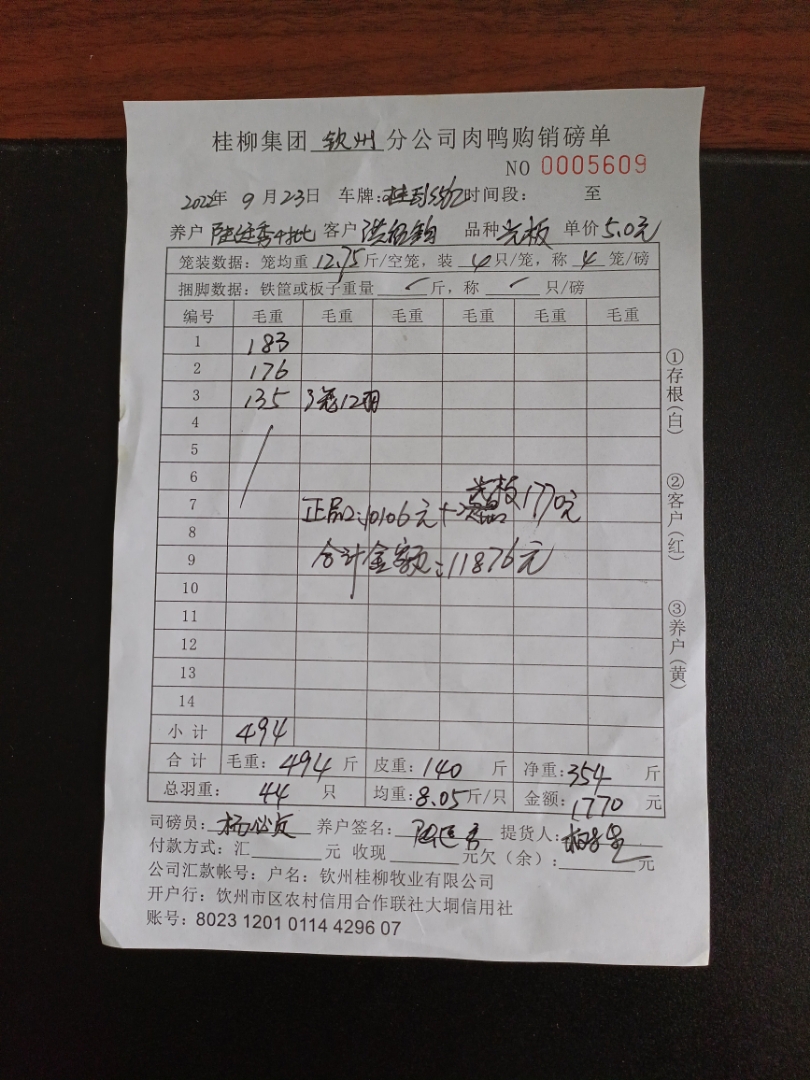 桂柳集团 钦州 分公司肉鸭购销磅单
NO 0005609
2022年 9月23日 车牌: 时间段: 至
养户 客户 品种 光板 单价 5.0元
笼装数据:笼均重 12.75 斤/空笼,装 4 只/笼,称 4 笼/磅
捆脚数据:铁筐或板子重量 斤,称 只/磅
编号 毛重 毛重 毛重 毛重 毛重 毛重
1 183
2 176
3 135 3笼12羽
4
5
6
7
8
9
10
11
12
13
14
正品:10106元+光板1770元
合计金额:11876元
小计 494
合计 毛重:494 斤 皮重:140 斤 净重:354 斤
总羽重: 44 只 均重:8.05斤/只 金额:1770 元
司磅员: 养户签名: 提货人:
付款方式:汇 元 收现 元欠(余): 元
公司汇款帐号:户名:钦州桂柳牧业有限公司
开户行:钦州市区农村信用合作联社大垌信用社
账号:8023 1201 0114 4296 07
①存根(白)
②客户(红)
③养户(黄)